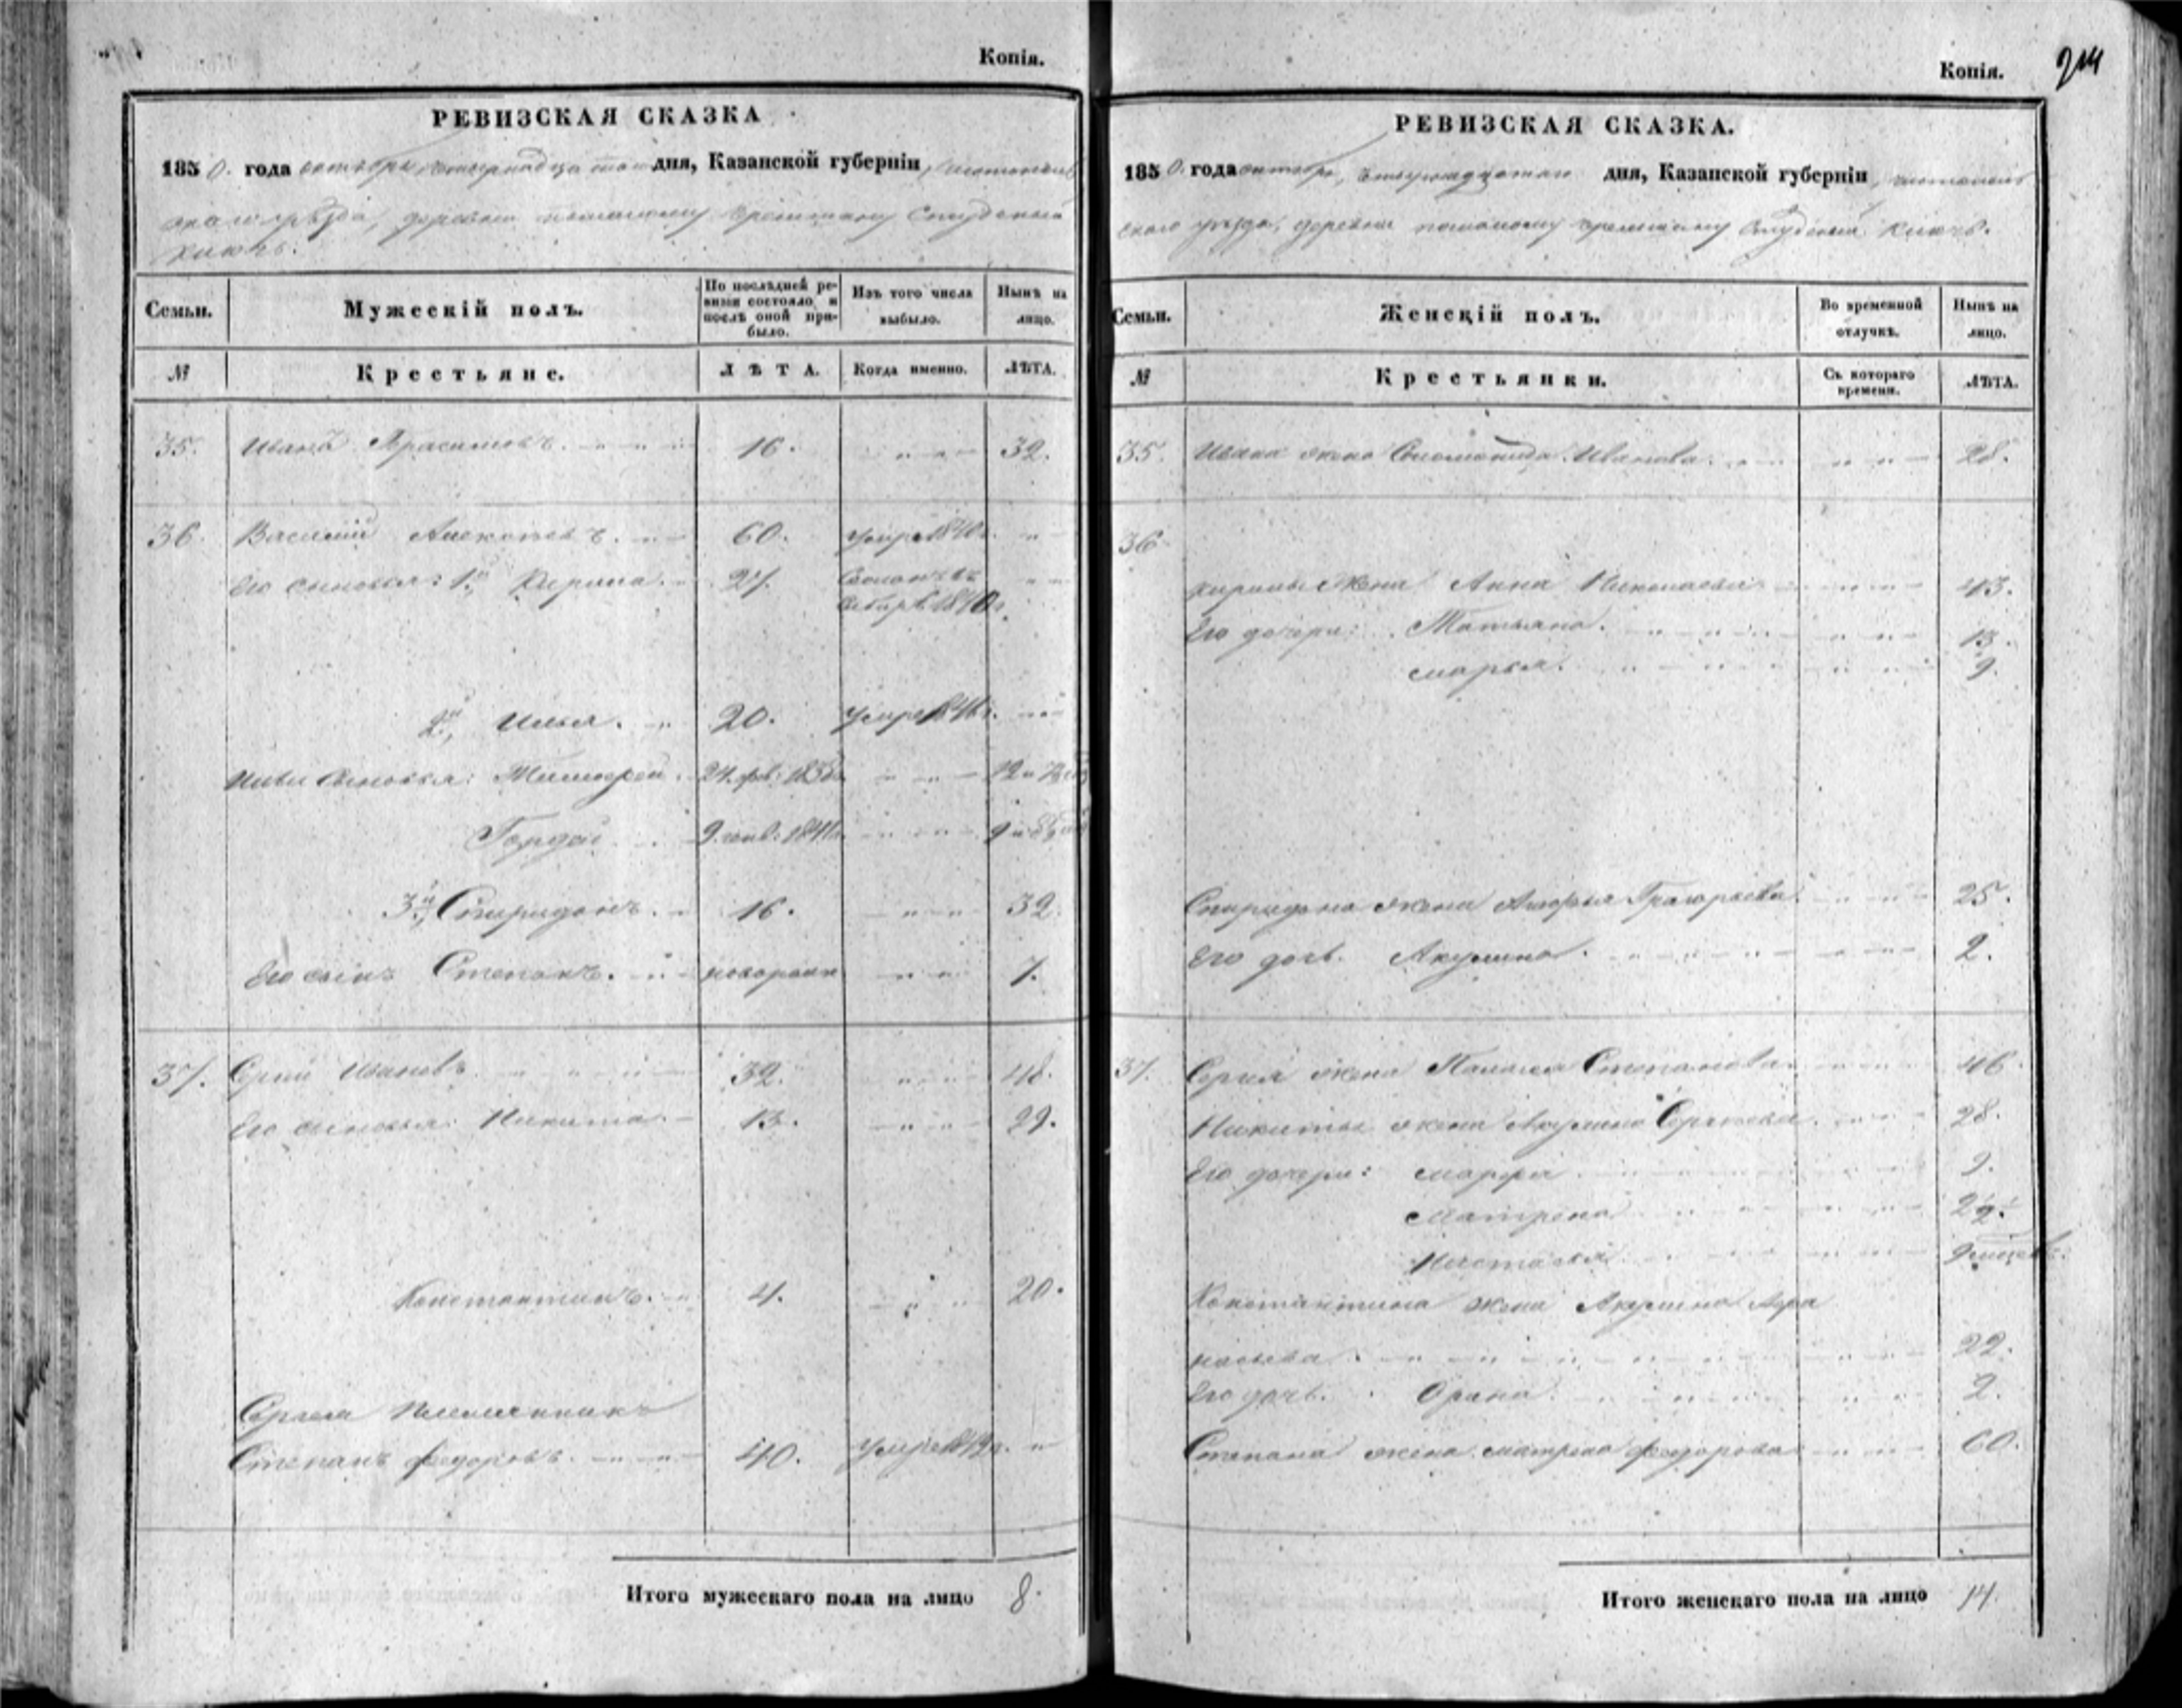 Копія.
РЕВИЗСКАЯ СКАЗКА
1850. года октября, четырнадцатаго дня, Казанской губерніи, чистополь
скаго уѣзда, деревни по малому черемшану Студеный
Ключь.
Семьи. Мужескій полъ. По послѣдней ревизіи состояло и послѣ оной прибыло. Изъ того числа выбыло. Нынѣ на лицо.
№ Крестьяне. ЛѢТА. Когда именно. ЛѢТА.
35. Иванъ Герасимовъ. 16. 32.
36. Василий Алексѣевъ. 60. Умре 1840 г.
Его сыновья: 1й Кирила. 27. 1840 г.
2й Илья. 20. Умре
Ильи сыновья: Тимофей. 24. фев: 12 и
Гордей 9. генв: 1841 г. 9 и
3й Спиридонъ. 16. 32.
Его сынъ Степанъ. новорожд. 7.
37. Сергѣй Ивановъ. 32. 48.
Его сыновья: Никита. 13. 29.
Константинъ. 4. 20.
Сергея племянникъ
Степанъ Федоровъ. 40. Умре
Итого мужескаго пола на лицо 8.
Копія. 214
РЕВИЗСКАЯ СКАЗКА.
1850. года октября, четырнадцатаго дня, Казанской губерніи, чистополь
скаго уѣзда, деревни по малому черемшану Студеный Ключь.
Семьи. Женскій полъ. Во временной отлучкѣ. Нынѣ на лицо.
№ Крестьянки. Съ котораго времени. ЛѢТА.
35. Ивана жена Соломонида Иванова. 28.
36.
Кирилы жена Анна Николаева 43.
Его дочери: Татьяна. 13.
Марья. 9.
Спиридона жена Марья Григорьева. 25.
Его дочь. Акулина. 2.
37. Сергея жена Палагея Степанова 46.
Никиты жена Акулина Сергѣева. 28.
Его дочери: Марфа. 9.
Матрена 2½.
Настасья 9 месецовъ.
Константина жена Акулина Афа
насьева. 22.
Его дочь. Орина. 2.
Степана жена Матрена Федорова 60.
Итого женскаго пола на лицо 14.